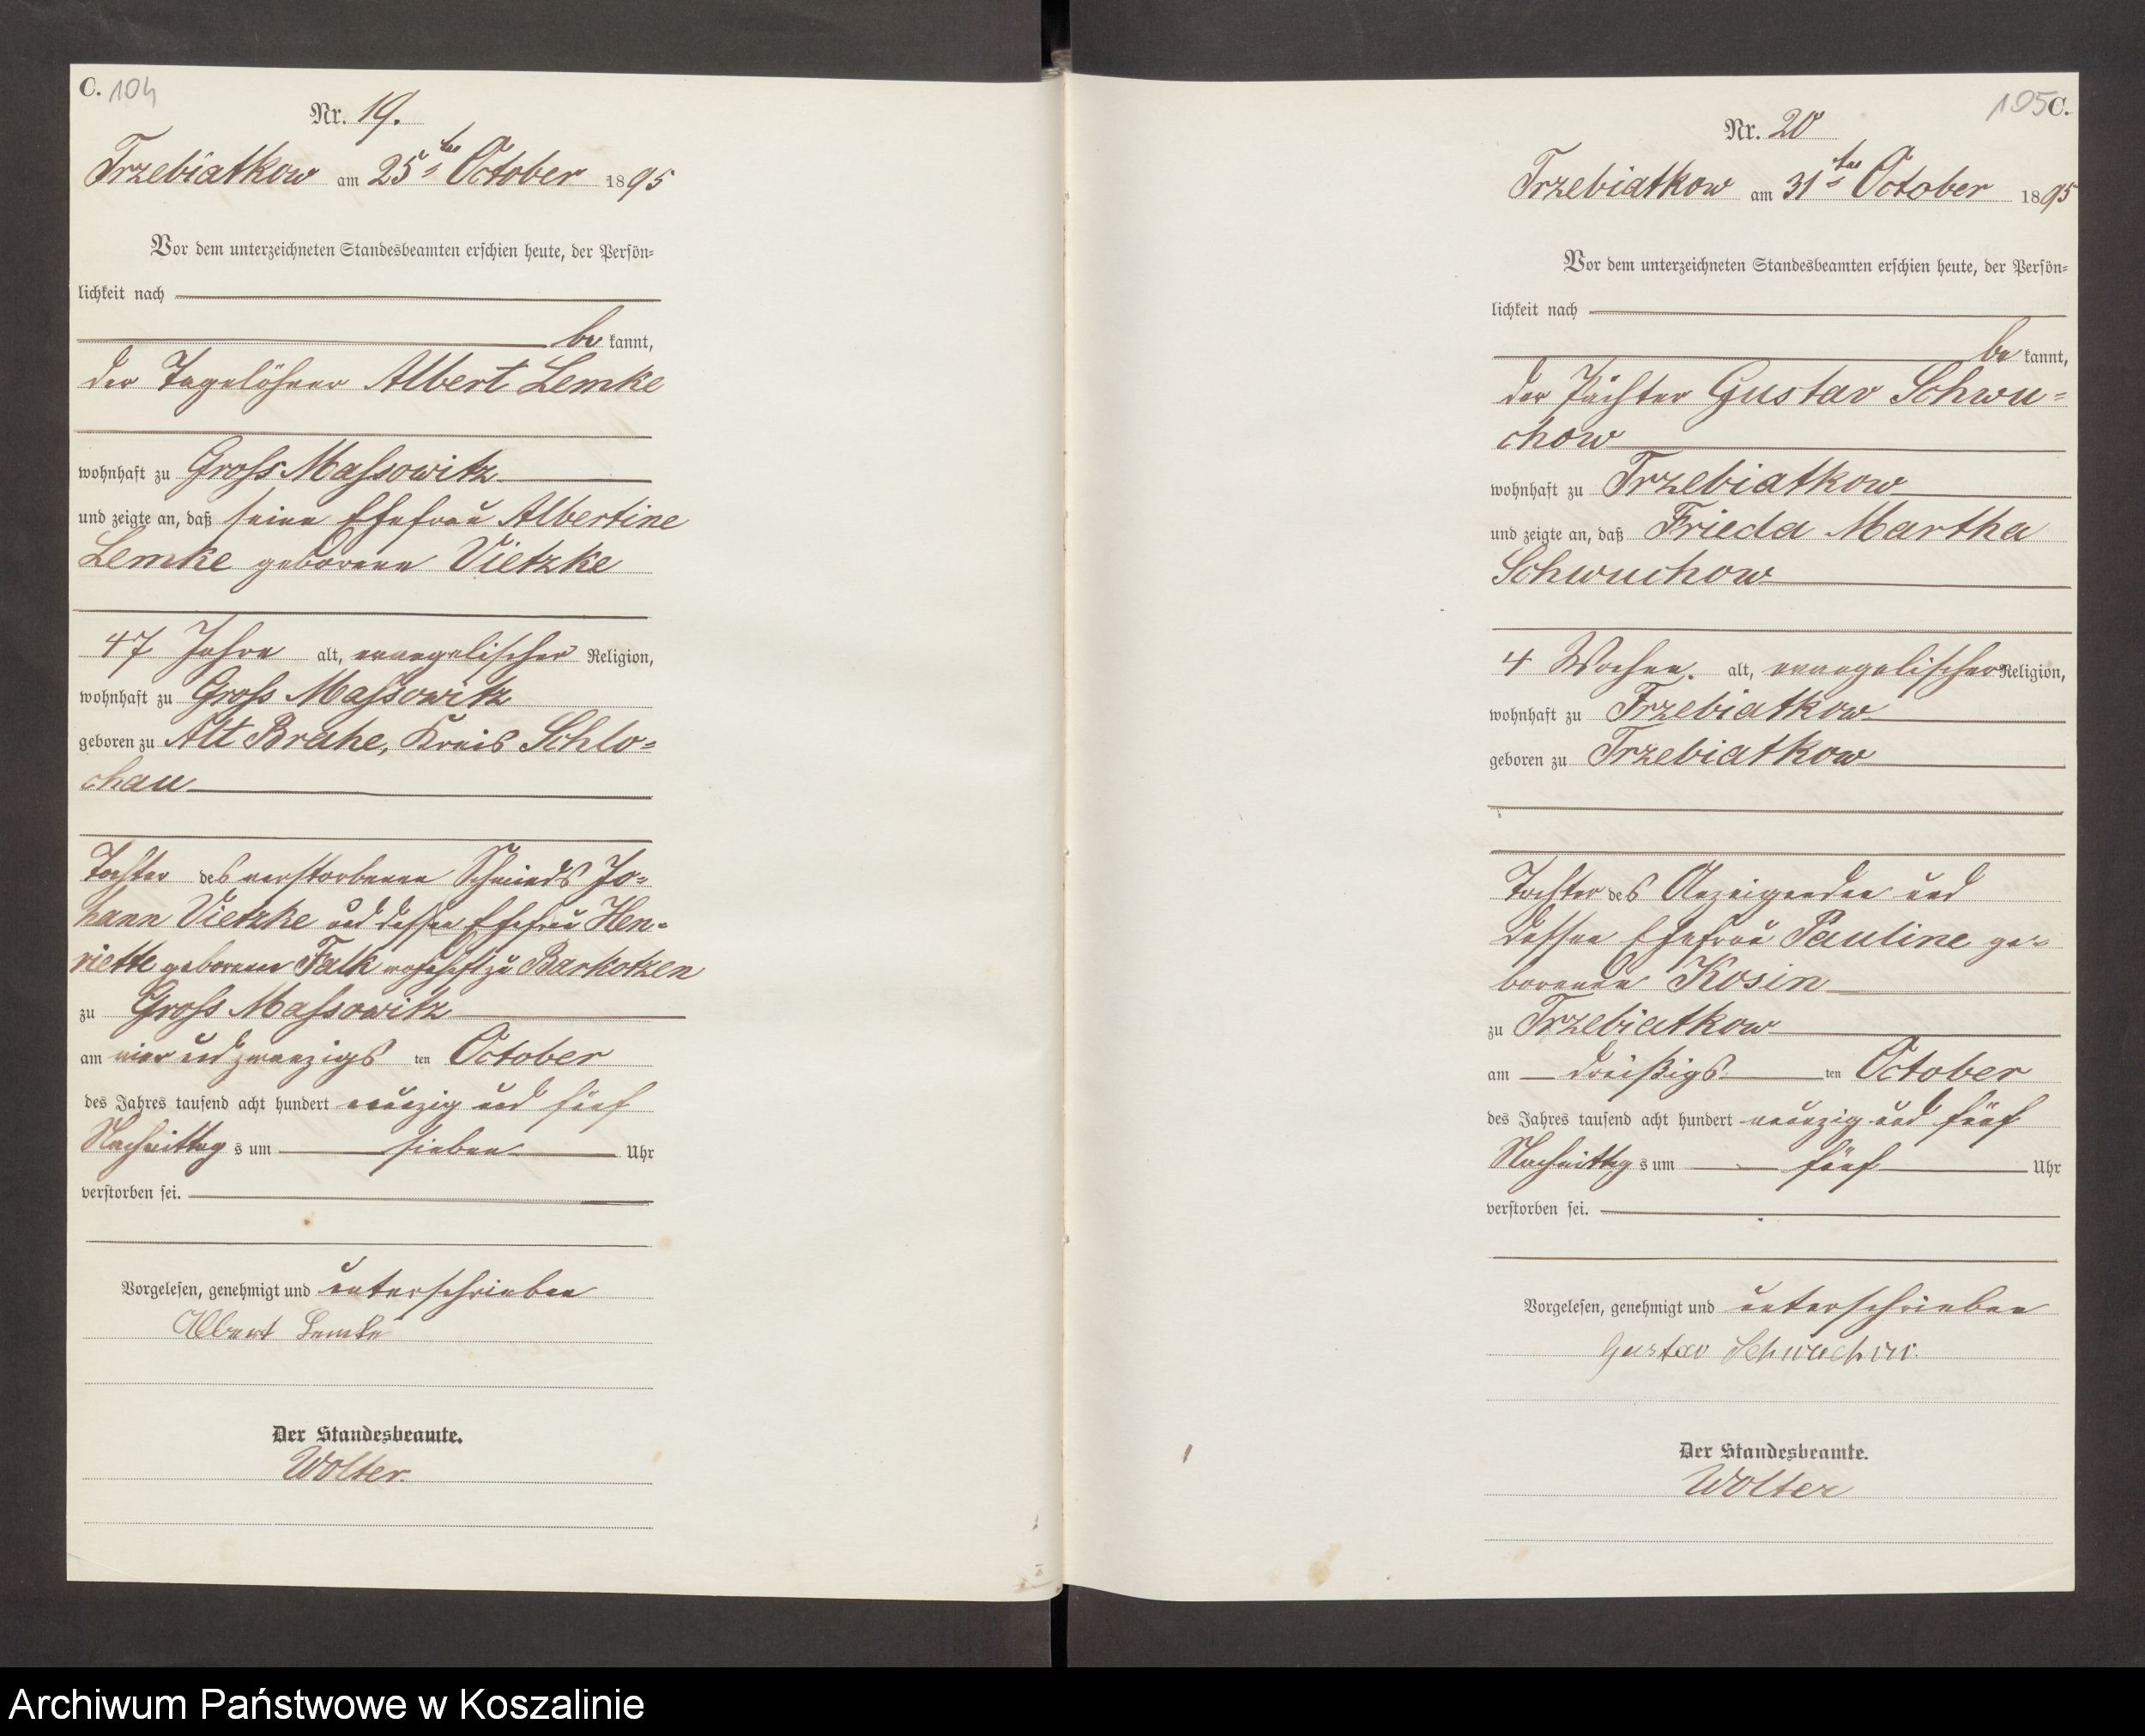 C. 104
Nr. 19.
Trzebiatkow am 25ten October 1895
Vor dem unterzeichneten Standesbeamten erschien heute, der Persön=
lichkeit nach
be kannt,
der Tagelöhner Albert Lemke
wohnhaft zu Gross Massowitz
und zeigte an, daß seine Ehefrau Albertine
Lemke geborene Vietzke
47 Jahre alt, evangelischer Religion,
wohnhaft zu Gross Massowitz
geboren zu Alt Brahe, Kreis Schlo=
chau
Tochter des verstorbenen Schmieds Jo=
hann Vietzke und dessen Ehefrau Hen=
riette geborene Falk wohnhaft zu Barkotzen
zu Gross Massowitz
am vier und zwanzigs ten October
des Jahres tausend acht hundert neunzig und fünf
Nachmittag s um sieben Uhr
verstorben sei.
Vorgelesen, genehmigt und unterschrieben
Albert Lemke
Der Standesbeamte.
Wolter.
105 C.
Nr. 20
Trzebiatkow am 31ten October 1895
Vor dem unterzeichneten Standesbeamten erschien heute, der Persön=
lichkeit nach
be kannt,
der Pächter Gustav Schwu=
chow
wohnhaft zu Trzebiatkow
und zeigte an, daß Frieda Martha
Schwuchow
4 Wochen. alt, evangelischer Religion,
wohnhaft zu Trzebiatkow
geboren zu Trzebiatkow
Tochter des Anzeigenden und
dessen Ehefrau Pauline ge=
borenen Kosin
zu Trzebiatkow
am dreißigs ten October
des Jahres tausend acht hundert neunzig und fünf
Nachmittag s um fünf Uhr
verstorben sei.
Vorgelesen, genehmigt und unterschrieben
Gustav Schwuchow.
Der Standesbeamte.
Wolter
Archiwum Państwowe w Koszalinie